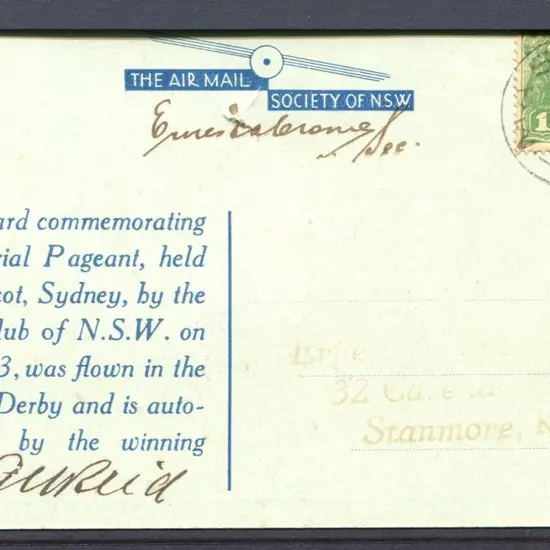 THE AIR MAIL
SOCIETY OF NSW
Ernest A Crome
Sec.
1
ard commemorating
rial Pageant, held
cot, Sydney, by the
lub of N.S.W. on
3, was flown in the
Derby and is auto-
by the winning
Reid
Ernie
32
Stanmore, N